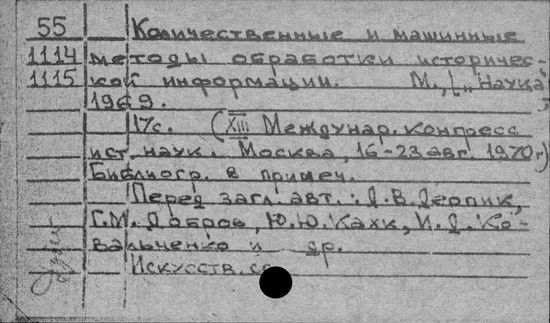 55 Количественные и машинные
1114 методы обработки историчес-
1115 кой информации. М., [„Наука"]
1969.
17с. (XIII Междунар. конгресс
ист. наук. Москва, 16-23 авг. 1970г.)
Библиогр. в примеч.
Перед загл. авт.: Д.В. Деопик,
Г.М. Добров, Ю.Ю. Кахк, И.Д. Ко-
вальченко и др.
Искусств.